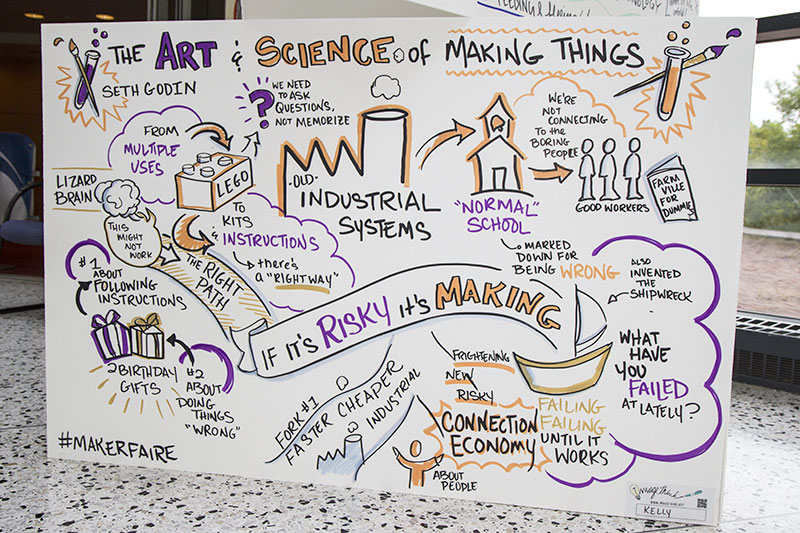 FEEDING &
THE ART & SCIENCE OF MAKING THINGS
SETH GODIN
WE NEED
TO ASK
QUESTIONS,
NOT MEMORIZE
?
FROM
MULTIPLE
USES
LEGO
TO
KITS
&
INSTRUCTIONS
there's
a "RIGHT WAY"
LIZARD
BRAIN
THIS
MIGHT
NOT
WORK
THE RIGHT
PATH
·OLD·
INDUSTRIAL
SYSTEMS
"NORMAL"
SCHOOL
MARKED
DOWN FOR
BEING WRONG
WE'RE
NOT
CONNECTING
TO the
BORING
PEOPLE
GOOD WORKERS
FARM
VILLE
FOR
DUMMIE
#1
ABOUT
FOLLOWING
INSTRUCTIONS
2 BIRTHDAY
GIFTS
#2
ABOUT
DOING
THINGS
"WRONG"
IF IT'S RISKY it's MAKING
ALSO
INVENTED
THE
SHIPWRECK
WHAT
HAVE
YOU
FAILED
AT LATELY?
FAILING
FAILING
UNTIL IT
WORKS
FRIGHTENING
NEW
RISKY
CONNECTION
ECONOMY
ABOUT
PEOPLE
FORK #1
FASTER CHEAPER
INDUSTRIAL
#MAKERFAIRE
KELLY